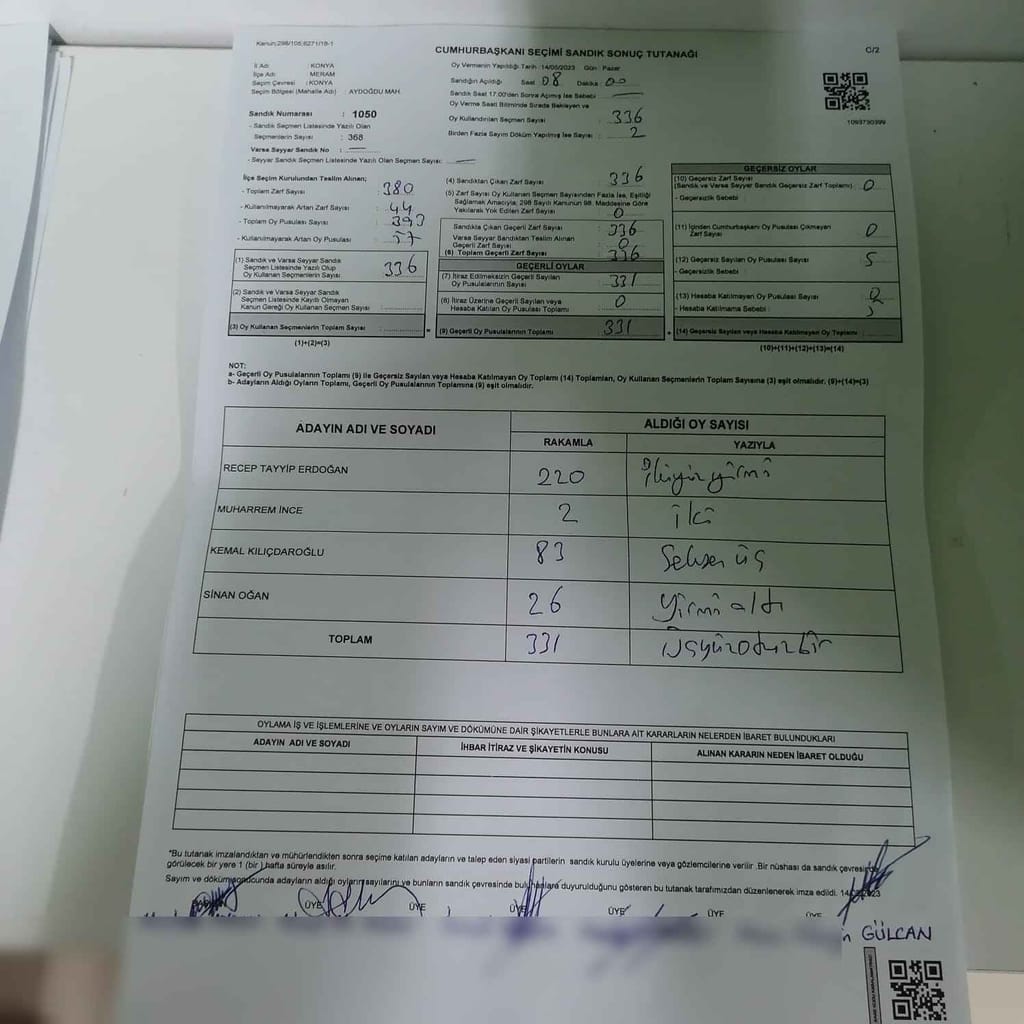 Kanun:298/105;6271/18-1
CUMHURBAŞKANI SEÇİMİ SANDIK SONUÇ TUTANAĞI
C/2
İl Adı : KONYA
İlçe Adı : MERAM
Seçim Çevresi : KONYA
Seçim Bölgesi (Mahalle Adı) : AYDOĞDU MAH.
Oy Vermenin Yapıldığı Tarih :14/05/2023 Gün : Pazar
Sandığın Açıldığı Saat 08 Dakika 00
Sandık Saat 17.00'den Sonra Açılmış İse Sebebi
Oy Verme Saati Bitiminde Sırada Bekleyen ve
Oy Kullandırılan Seçmen Sayısı : 336
Birden Fazla Sayım Döküm Yapılmış İse Sayısı : 2
1093730399
Sandık Numarası : 1050
- Sandık Seçmen Listesinde Yazılı Olan
Seçmenlerin Sayısı : 368
Varsa Seyyar Sandık No : —
- Seyyar Sandık Seçmen Listesinde Yazılı Olan Seçmen Sayısı: —
İlçe Seçim Kurulundan Teslim Alınan;
- Toplam Zarf Sayısı : 380
- Kullanılmayarak Artan Zarf Sayısı : 44
- Toplam Oy Pusulası Sayısı : 393
- Kullanılmayarak Artan Oy Pusulası : 57
(1) Sandık ve Varsa Seyyar Sandık
Seçmen Listesinde Yazılı Olup
Oy Kullanan Seçmenlerin Sayısı : 336
(2) Sandık ve Varsa Seyyar Sandık
Seçmen Listesinde Kayıtlı Olmayan
Kanun Gereği Oy Kullanan Seçmen Sayısı :
(3) Oy Kullanan Seçmenlerin Toplam Sayısı :
(1)+(2)=(3)
(4) Sandıktan Çıkan Zarf Sayısı : 336
(5) Zarf Sayısı Oy Kullanan Seçmen Sayısından Fazla İse, Eşitliği
Sağlamak Amacıyla; 298 Sayılı Kanunun 98. Maddesine Göre
Yakılarak Yok Edilen Zarf Sayısı : 0
Sandıkta Çıkan Geçerli Zarf Sayısı : 336
Varsa Seyyar Sandıktan Teslim Alınan
Geçerli Zarf Sayısı : 0
(6) Toplam Geçerli Zarf Sayısı : 336
GEÇERLİ OYLAR
(7) İtiraz Edilmeksizin Geçerli Sayılan
Oy Pusulalarının Sayısı : 331
(8) İtiraz Üzerine Geçerli Sayılan veya
Hesaba Katılan Oy Pusulası Toplamı : 0
(9) Geçerli Oy Pusulalarının Toplamı : 331
GEÇERSİZ OYLAR
(10) Geçersiz Zarf Sayısı
(Sandık ve Varsa Seyyar Sandık Geçersiz Zarf Toplamı) : 0
- Geçersizlik Sebebi :
(11) İçinden Cumhurbaşkanı Oy Pusulası Çıkmayan
Zarf Sayısı : 0
(12) Geçersiz Sayılan Oy Pusulası Sayısı : 5
- Geçersizlik Sebebi :
(13) Hesaba Katılmayan Oy Pusulası Sayısı :
- Hesaba Katılmama Sebebi :
(14) Geçersiz Sayılan veya Hesaba Katılmayan Oy Toplamı :
(10)+(11)+(12)+(13)=(14)
NOT:
a- Geçerli Oy Pusulalarının Toplamı (9) ile Geçersiz Sayılan veya Hesaba Katılmayan Oy Toplamı (14) Toplamları, Oy Kullanan Seçmenlerin Toplam Sayısına (3) eşit olmalıdır. (9)+(14)=(3)
b- Adayların Aldığı Oyların Toplamı, Geçerli Oy Pusulalarının Toplamına (9) eşit olmalıdır.
ADAYIN ADI VE SOYADI ALDIĞI OY SAYISI
RAKAMLA YAZIYLA
RECEP TAYYİP ERDOĞAN 220 İkiyüzyirmi
MUHARREM İNCE 2 İki
KEMAL KILIÇDAROĞLU 83 Seksen üç
SİNAN OĞAN 26 Yirmi altı
TOPLAM 331 Üçyüzotuzbir
OYLAMA İŞ VE İŞLEMLERİNE VE OYLARIN SAYIM VE DÖKÜMÜNE DAİR ŞİKAYETLERLE BUNLARA AİT KARARLARIN NELERDEN İBARET BULUNDUKLARI
ADAYIN ADI VE SOYADI İHBAR İTİRAZ VE ŞİKAYETİN KONUSU ALINAN KARARIN NEDEN İBARET OLDUĞU
*Bu tutanak imzalandıktan ve mühürlendikten sonra seçime katılan adayların ve talep eden siyasi partilerin sandık kurulu üyelerine veya gözlemcilerine verilir .Bir nüshası da sandık çevresinde
görülecek bir yere 1 (bir ) hafta süreyle asılır.
Sayım ve döküm sonucunda adayların aldığı oyların sayılarını ve bunların sandık çevresinde bulunanlara duyurulduğunu gösteren bu tutanak tarafımızdan düzenlenerek imza edildi. 14/05/2023
ÜYE ÜYE ÜYE ÜYE ÜYE ÜYE
GÜLCAN